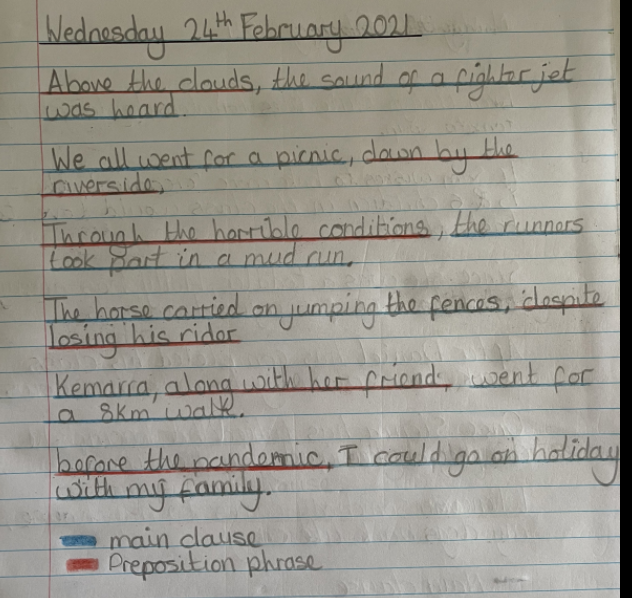 Wednesday 24th February 2021
Above the clouds, the sound of a fighter jet
was heard.
We all went for a picnic, down by the
riverside,
Through the horrible conditions, the runners
took part in a mud run.
The horse carried on jumping the fences, despite
losing his rider
Kemarra, along with her friend, went for
a 8km walk.
before the pandemic, I could go on holiday
with my family.
main clause
Preposition phrase